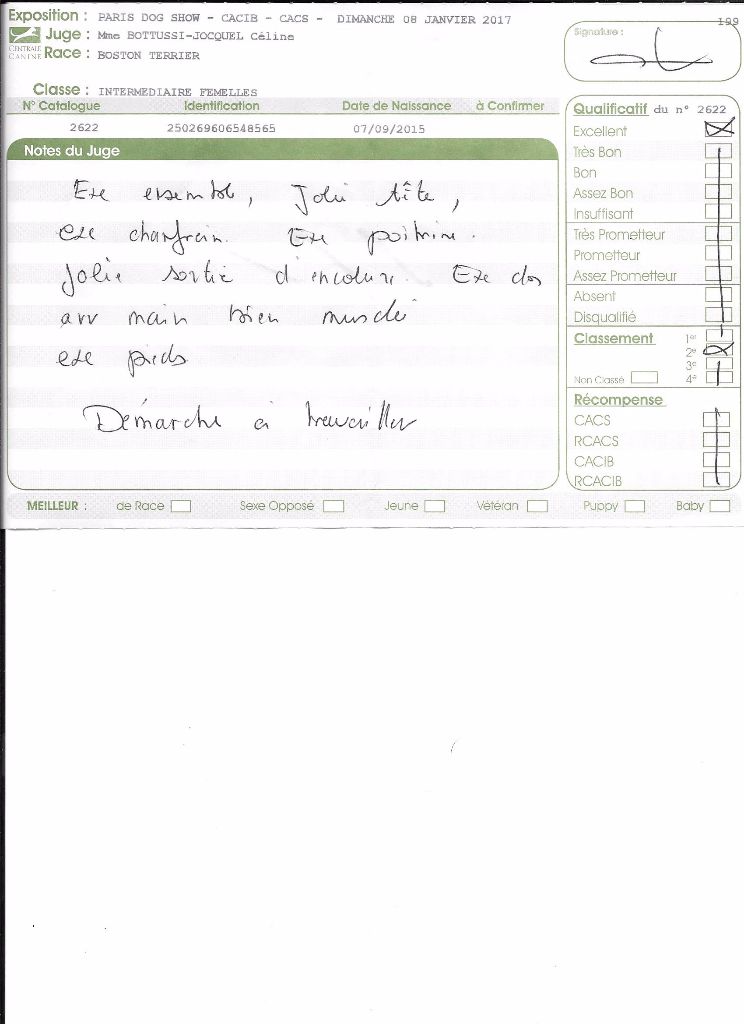 Exposition : PARIS DOG SHOW - CACIB - CACS - DIMANCHE 08 JANVIER 2017
199
Juge : Mme BOTTUSSI-JOCQUEL Céline
CENTRALE CANINE
Race : BOSTON TERRIER
Signature :
Classe : INTERMEDIAIRE FEMELLES
N° Catalogue Identification Date de Naissance à Confirmer
2622 250269606548565 07/09/2015
Notes du Juge
Exe ensemble, Jolie tête,
exe chanfrein. Exe poitrine.
Jolie sortie d'encolure. Exe dos
arr main bien musclé
exe pieds
Démarche à travailler
Qualificatif du n° 2622
Excellent
Très Bon
Bon
Assez Bon
Insuffisant
Très Prometteur
Prometteur
Assez Prometteur
Absent
Disqualifié
Classement 1er
2e
3e
Non Classé 4e
Récompense
CACS
RCACS
CACIB
RCACIB
MEILLEUR : de Race Sexe Opposé Jeune Vétéran Puppy Baby